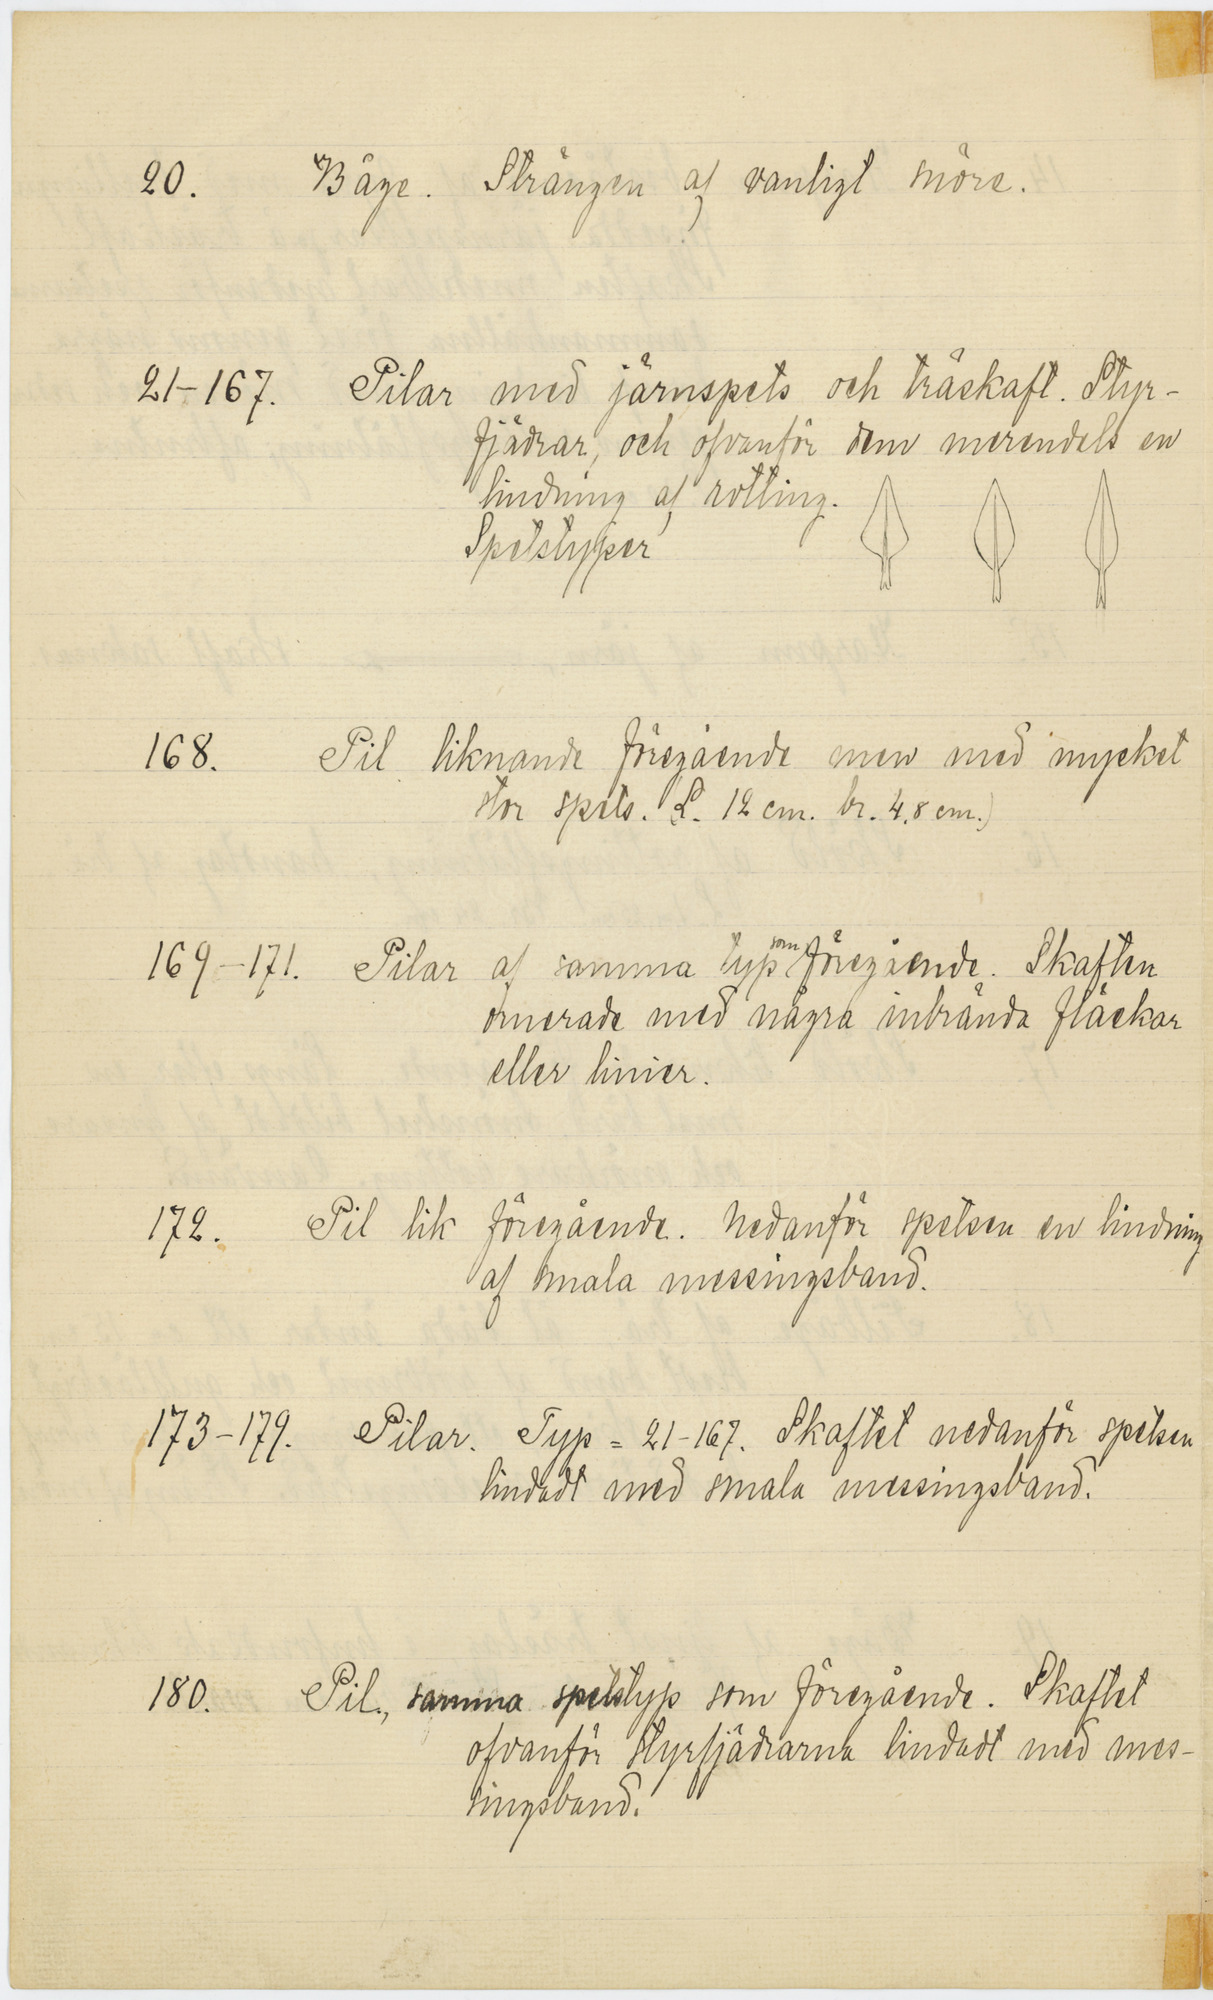 20. Båge. Strängen af vanligt snöre.
21–167. Pilar med järnspets och träskaft. Styr-
fjädrar, och ofvanför dem merendels en
lindning af rotting.
Spetstyper
168. Pil liknande föregående men med mycket
stor spets. (L. 12 cm. br. 4,8 cm.)
169–171. Pilar af samma typ som föregående. Skaften
ornerade med några inbrända fläckar
eller linier.
172. Pil lik föregående. Nedanför spetsen en lindning
af smala messingsband.
173–179. Pilar. Typ = 21–167. Skaftet nedanför spetsen
lindadt med smala messingsband.
180. Pil., samma spetstyp som föregående. Skaftet
ofvanför styrfjädrarna lindadt med mes-
singsband.